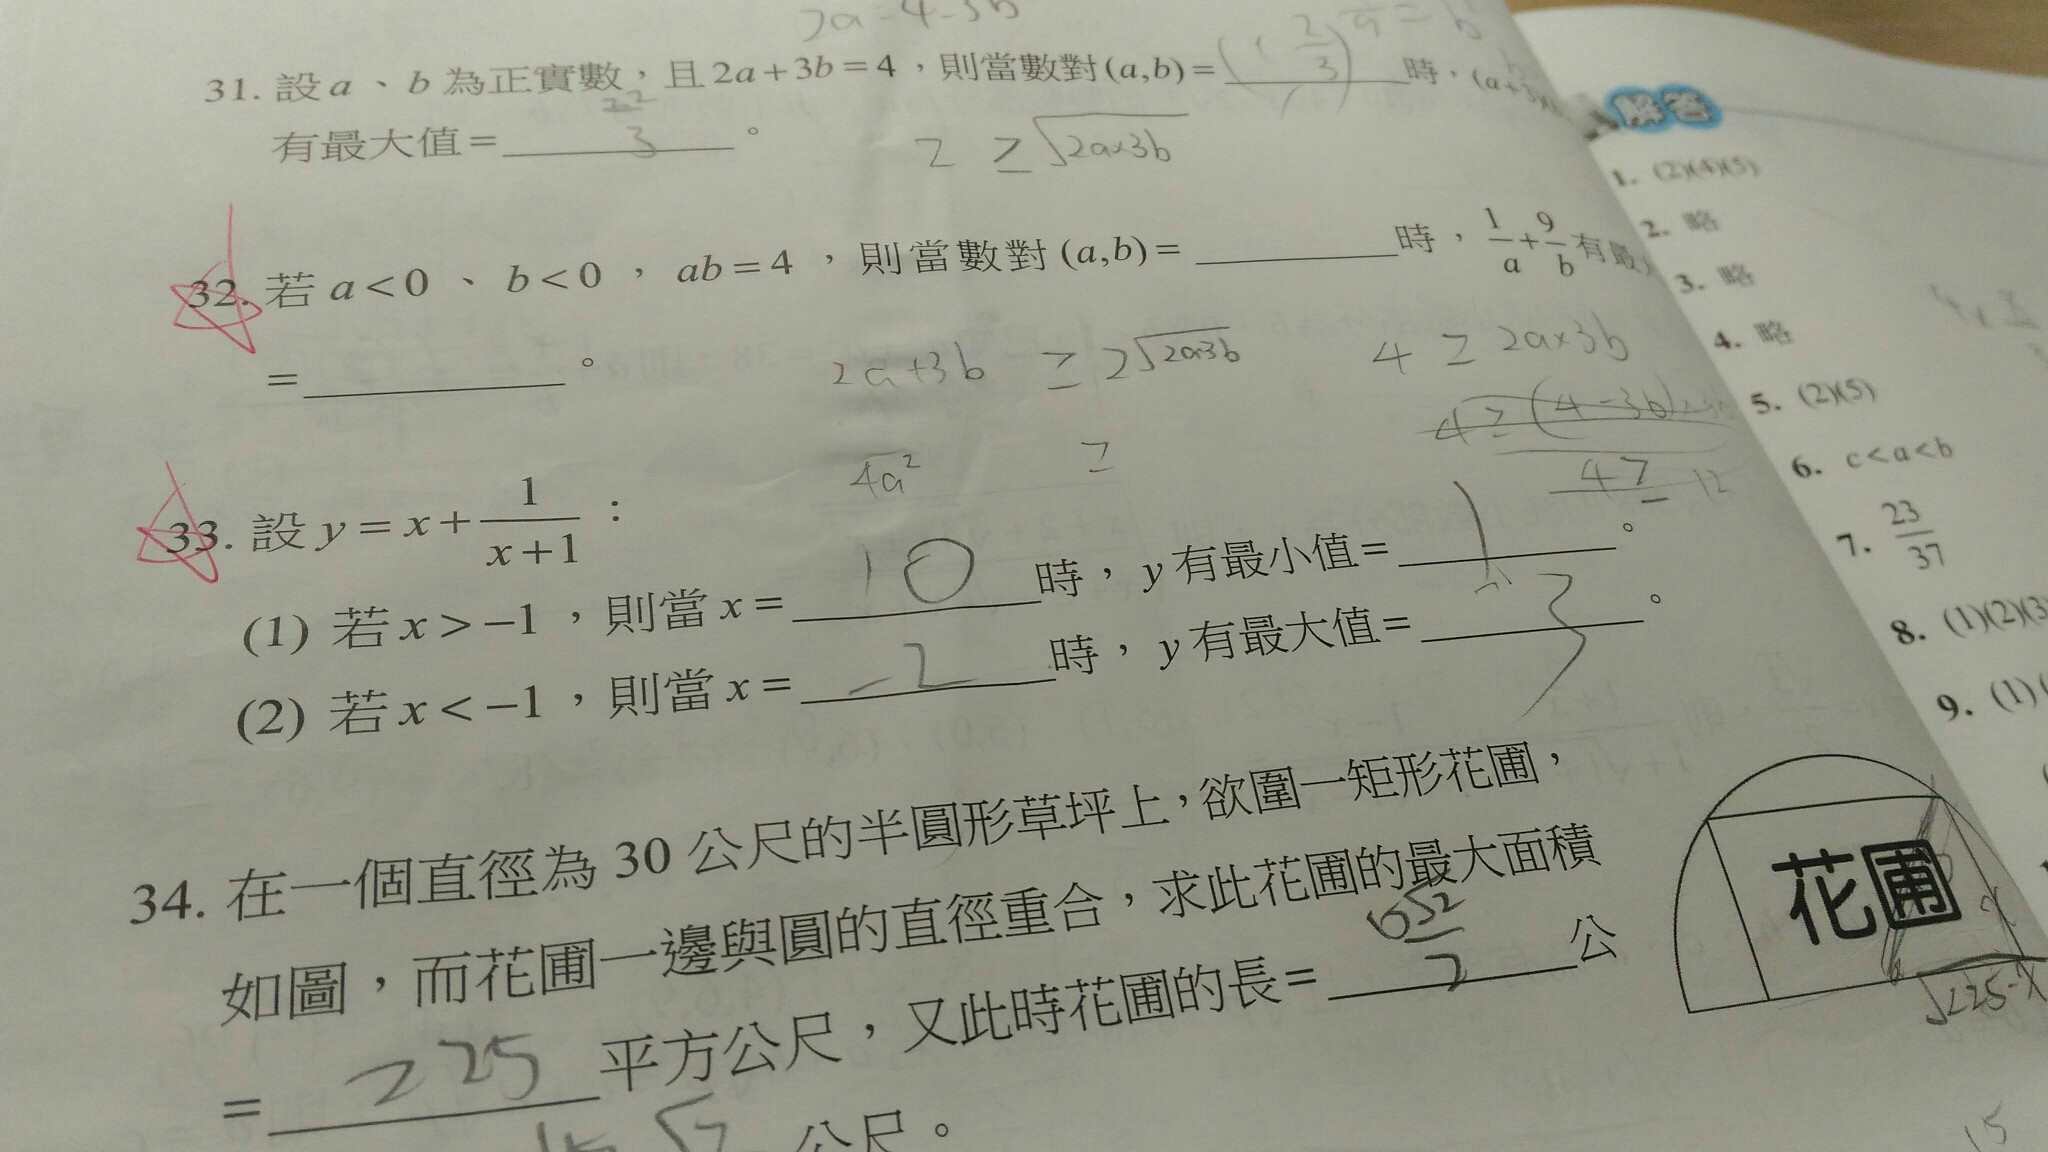 2a=4-3b
31. 設 a、b 為正實數，且 2a+3b=4，則當數對 (a,b)= (1 2/3) 時，(a+3
有最大值= 3 。
2 ≥ √2a×3b
32. 若 a<0、b<0，ab=4，則當數對 (a,b)= ________ 時，1/a+9/b 有最
= ________ 。
2a+3b ≥ 2√2a3b 4 ≥ 2a×3b
4a² ≥
33. 設 y=x+1/(x+1)：
(1) 若 x>-1，則當 x= 0 時，y 有最小值= 1 。
(2) 若 x<-1，則當 x= -2 時，y 有最大值= -3 。
34. 在一個直徑為 30 公尺的半圓形草坪上，欲圍一矩形花圃，
如圖，而花圃一邊與圓的直徑重合，求此花圃的最大面積
= 225 平方公尺，又此時花圃的長= ________ 公
公尺。
花圃
√225-x
15
解答
1. (2)(4)(5)
2. 略
3. 略
4. 略
5. (2)(5)
6. c<a<b
7. 23/37
8. (1)(2)(3
9. (1)(